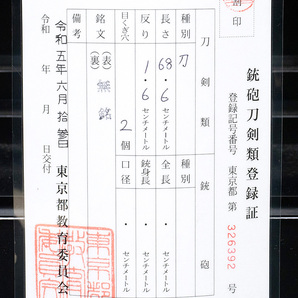 銃砲刀剣類登録証
登録記号番号 東京都 第 326392 号
刀剣類 銃砲
種別 刀 種別
長さ 68.6 センチメートル 全長 . センチメートル
反り 1.6 センチメートル 銃身長 . センチメートル
目くぎ穴 2個 口径 . センチメートル
銘文 (表) 無銘
(裏)
備考
令和五年六月拾參日 東京都教育委員会
令和 年 月 日交付